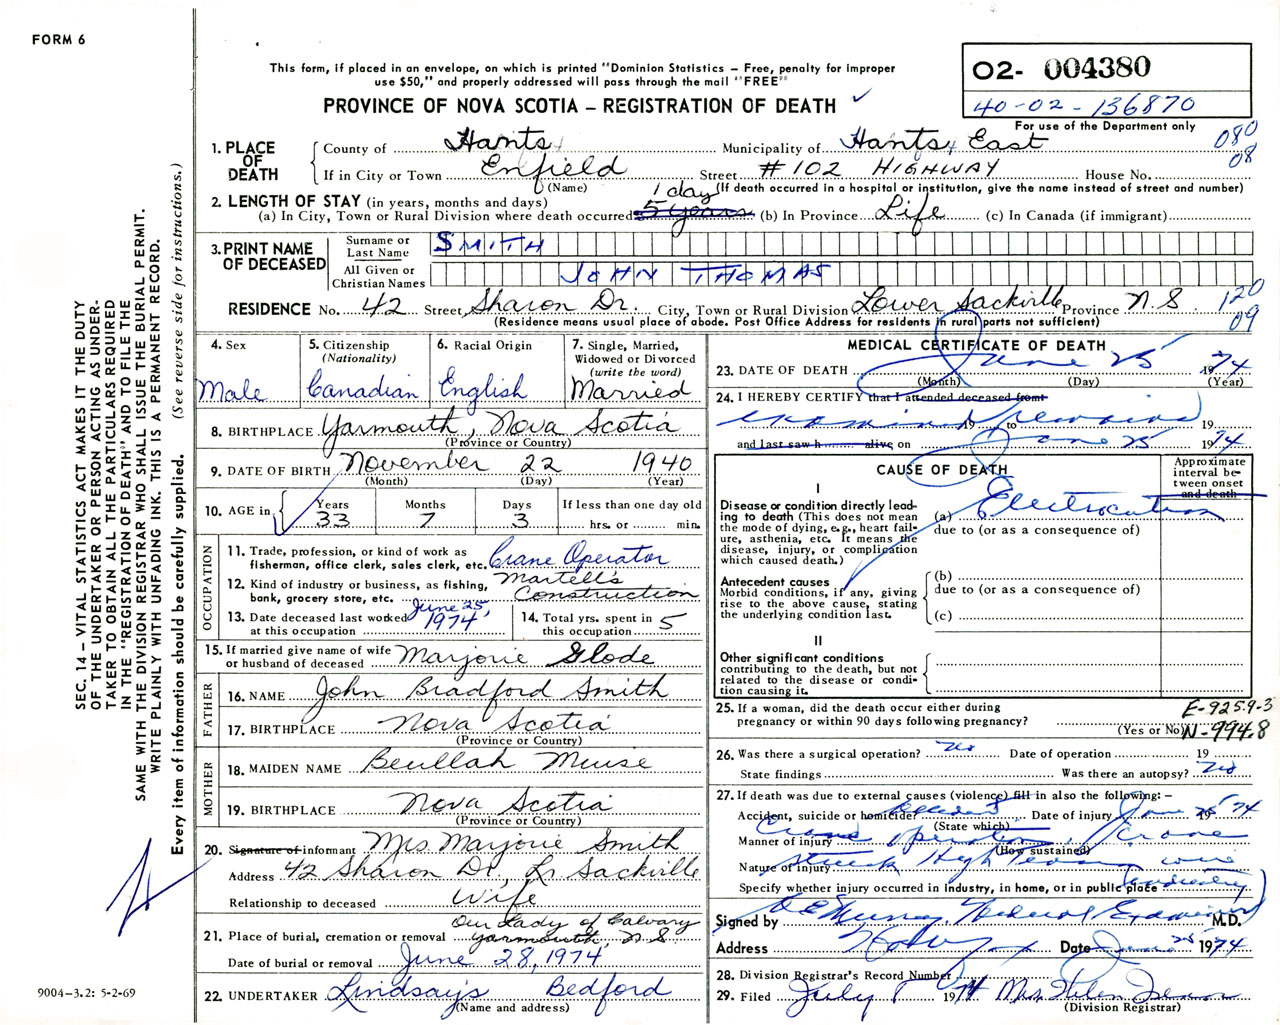 FORM 6
This form, if placed in an envelope, on which is printed "Dominion Statistics – Free, penalty for improper
use $50," and properly addressed will pass through the mail "FREE"
PROVINCE OF NOVA SCOTIA – REGISTRATION OF DEATH ✓
02- 004380
40-02-136870
For use of the Department only
080
08
1. PLACE OF DEATH
County of Hants Municipality of Hants East
If in City or Town Enfield Street #102 HIGHWAY House No.
(Name) (If death occurred in a hospital or institution, give the name instead of street and number)
2. LENGTH OF STAY (in years, months and days) 1 day
(a) In City, Town or Rural Division where death occurred 5 years (b) In Province Life (c) In Canada (if immigrant)
3. PRINT NAME OF DECEASED
Surname or Last Name SMITH
All Given or Christian Names JOHN THOMAS
RESIDENCE No. 42 Street Sharon Dr. City, Town or Rural Division Lower Sackville Province N.S.
(Residence means usual place of abode. Post Office Address for residents in rural parts not sufficient)
120
09
4. Sex
Male
5. Citizenship
(Nationality)
Canadian
6. Racial Origin
English
7. Single, Married,
Widowed or Divorced
(write the word)
Married
8. BIRTHPLACE Yarmouth, Nova Scotia
(Province or Country)
9. DATE OF BIRTH November 22 1940
(Month) (Day) (Year)
10. AGE in Years Months Days If less than one day old
33 7 3 hrs. or min.
OCCUPATION
11. Trade, profession, or kind of work as
fisherman, office clerk, sales clerk, etc. Crane Operator
12. Kind of industry or business, as fishing,
bank, grocery store, etc. Martell's Construction
13. Date deceased last worked
at this occupation June 25, 1974
14. Total yrs. spent in
this occupation 5
15. If married give name of wife
or husband of deceased Marjorie Glode
FATHER
16. NAME John Bradford Smith
17. BIRTHPLACE Nova Scotia
(Province or Country)
MOTHER
18. MAIDEN NAME Beullah Muise
19. BIRTHPLACE Nova Scotia
(Province or Country)
20. Signature of informant Mrs Marjorie Smith
Address 42 Sharon Dr, Lr Sackville
Relationship to deceased Wife
21. Place of burial, cremation or removal Our Lady of Calvary
Yarmouth, N.S.
Date of burial or removal June 28, 1974
22. UNDERTAKER Lindsay's Bedford
(Name and address)
MEDICAL CERTIFICATE OF DEATH
23. DATE OF DEATH June 25 1974
(Month) (Day) (Year)
24. I HEREBY CERTIFY that I attended deceased from
19 to 19
and last saw h alive on June 25 1974
CAUSE OF DEATH
Approximate
interval be-
tween onset
and death
I
Disease or condition directly lead-
ing to death (This does not mean
the mode of dying, e.g., heart fail-
ure, asthenia, etc. It means the
disease, injury, or complication
which caused death.)
(a) Electrocution
due to (or as a consequence of)
Antecedent causes
Morbid conditions, if any, giving
rise to the above cause, stating
the underlying condition last.
(b)
due to (or as a consequence of)
(c)
II
Other significant conditions
contributing to the death, but not
related to the disease or condi-
tion causing it.
25. If a woman, did the death occur either during
pregnancy or within 90 days following pregnancy?
(Yes or No)
E-925.9-3
N-994.8
26. Was there a surgical operation? No Date of operation 19
State findings Was there an autopsy? No
27. If death was due to external causes (violence) fill in also the following: –
Accident, suicide or homicide? Accident Date of injury June 25 1974
(State which)
Manner of injury Crane operator Crane
(How sustained)
Nature of injury struck High Tension wire
Specify whether injury occurred in industry, in home, or in public place (industry)
Signed by Murray, Medical Examiner M.D.
Address Date June 25 1974
28. Division Registrar's Record Number
29. Filed July 8 1974 Mrs. Helen
(Division Registrar)
SEC. 14 – VITAL STATISTICS ACT MAKES IT THE DUTY
OF THE UNDERTAKER OR PERSON ACTING AS UNDER-
TAKER TO OBTAIN ALL THE PARTICULARS REQUIRED
IN THE "REGISTRATION OF DEATH" AND TO FILE THE
SAME WITH THE DIVISION REGISTRAR WHO SHALL ISSUE THE BURIAL PERMIT.
WRITE PLAINLY WITH UNFADING INK. THIS IS A PERMANENT RECORD.
Every item of information should be carefully supplied. (See reverse side for instructions.)
9004-3.2: 5-2-69